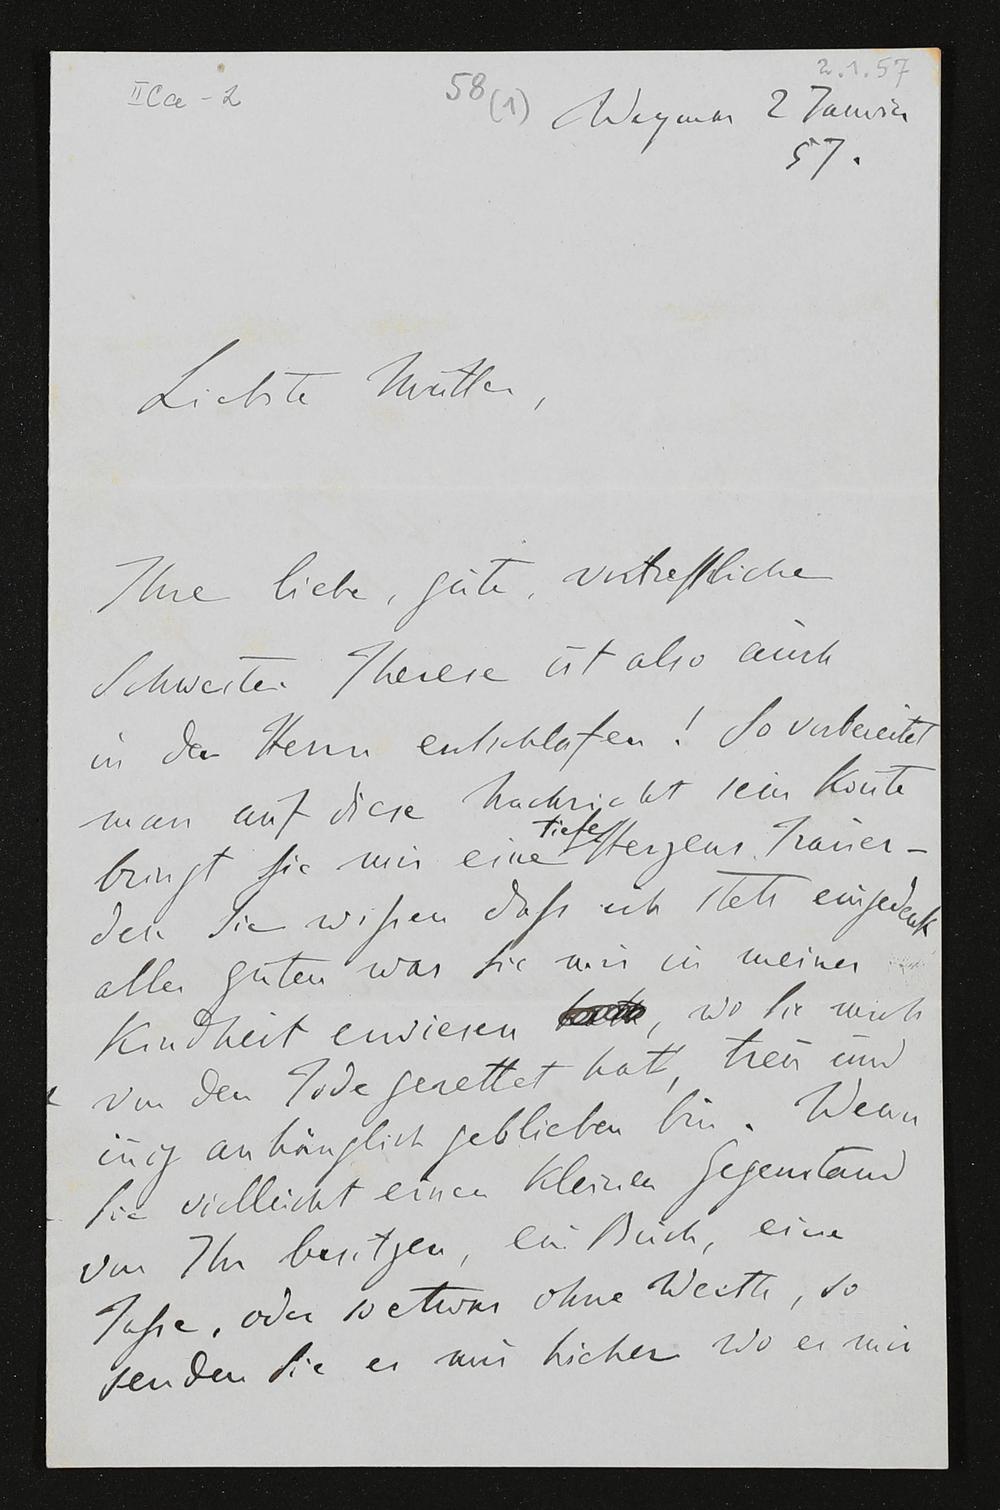 IICa - 2
58 (1)
2.1.57
Weymar 2 Janvier
57.
Liebste Mutter,
Ihre liebe, gute, vortreffliche
Schwester Therese ist also auch
in den Herrn entschlafen! So vorbereitet
man auf diese Nachricht sein konte
bringt sie mir eine tiefe Herzens Trauer –
den Sie wißen daß ich stets eingedenk
alles guten was sie mir in meiner
Kindheit erwiesen, wo Sie mich
von den Tode gerettet hat, treu und
inig anhänglich geblieben bin. Wenn
Sie vielleicht einen kleinen Gegenstand
von Ihr besitzen, ein Buch, eine
Taße, oder so etwas ohne Werth, so
senden Sie es mir hieher wo es mir